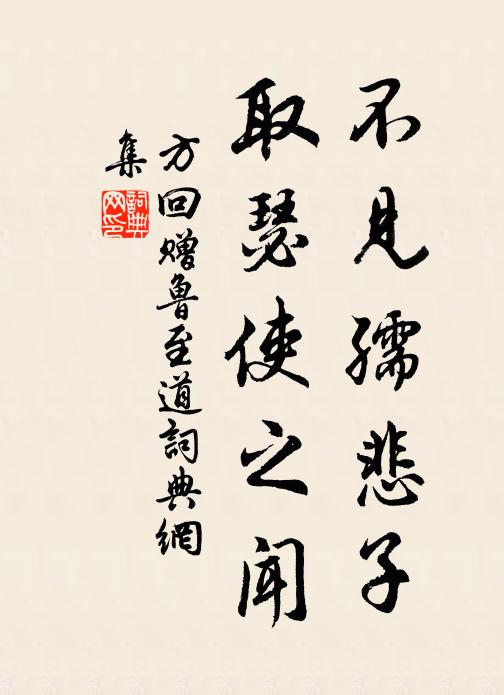 不見孺悲子
取瑟使之聞
方回贈魯至道詞典網
集
詞典网印